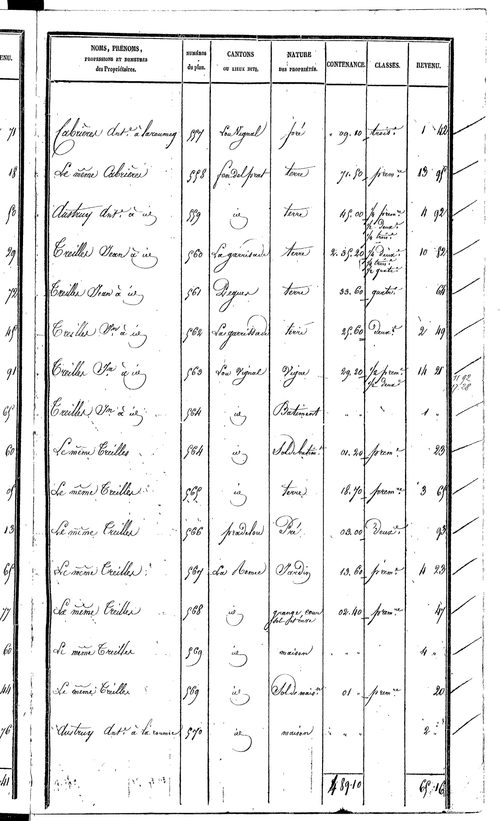 ENU.
NOMS, PRÉNOMS,
PROFESSIONS ET DEMEURES
des Propriétaires.
NUMÉROS
du plan.
CANTONS
OU LIEUX DITS.
NATURE
DES PROPRIÉTÉS.
CONTENANCE.
CLASSES.
REVENU.
71 Cabrières Ant.e à 557 Lou Vignal pré 09.10 trois.e 1 42
18 Le même Cabrières 558 fon del prat terre 71.50 prem.re 13 95
50 Austruy Ant.e à id 559 id terre 45.00 1/2 prem.re 4 92
1/2 deux.e
1/2 trois.e
29 Treilles Jean à id 560 La garrissade terre 2.35.20 1/2 deux.e 10 82
1/2 trois.e
1/2 quatr.e
72 Treilles Jean à id 561 terre 33.60 quatr.e 64
45 Treilles à id 562 La garrissade terre 25.60 Deux.e 2 49
91 Treilles à id 563 Lou Vignal Vigne 29.20 1/2 prem.re 14 28
1/2 deux.e
11 92
17 28
65 Treilles à id 564 id Bâtiment 1
60 Le même Treilles 564 id Sol de bâtim.t 01.20 prem.re 23
05 Le même Treilles 565 id terre 18.70 prem.re 3 65
13 Le même Treilles 566 pradelou Pré 03.00 Deux.e 93
65 Le même Treilles 567 La Roume Jardin 13.60 prem.re 4 23
77 Le même Treilles 568 id grange, cour 02.40 prem.re 47
60 Le même Treilles 569 id maison 4
44 Le même Treilles 569 id Sol de mais.n 01 prem.re 20
76 Austruy Ant.e à la roume 570 id maison 2
41
4 89.10 65 16